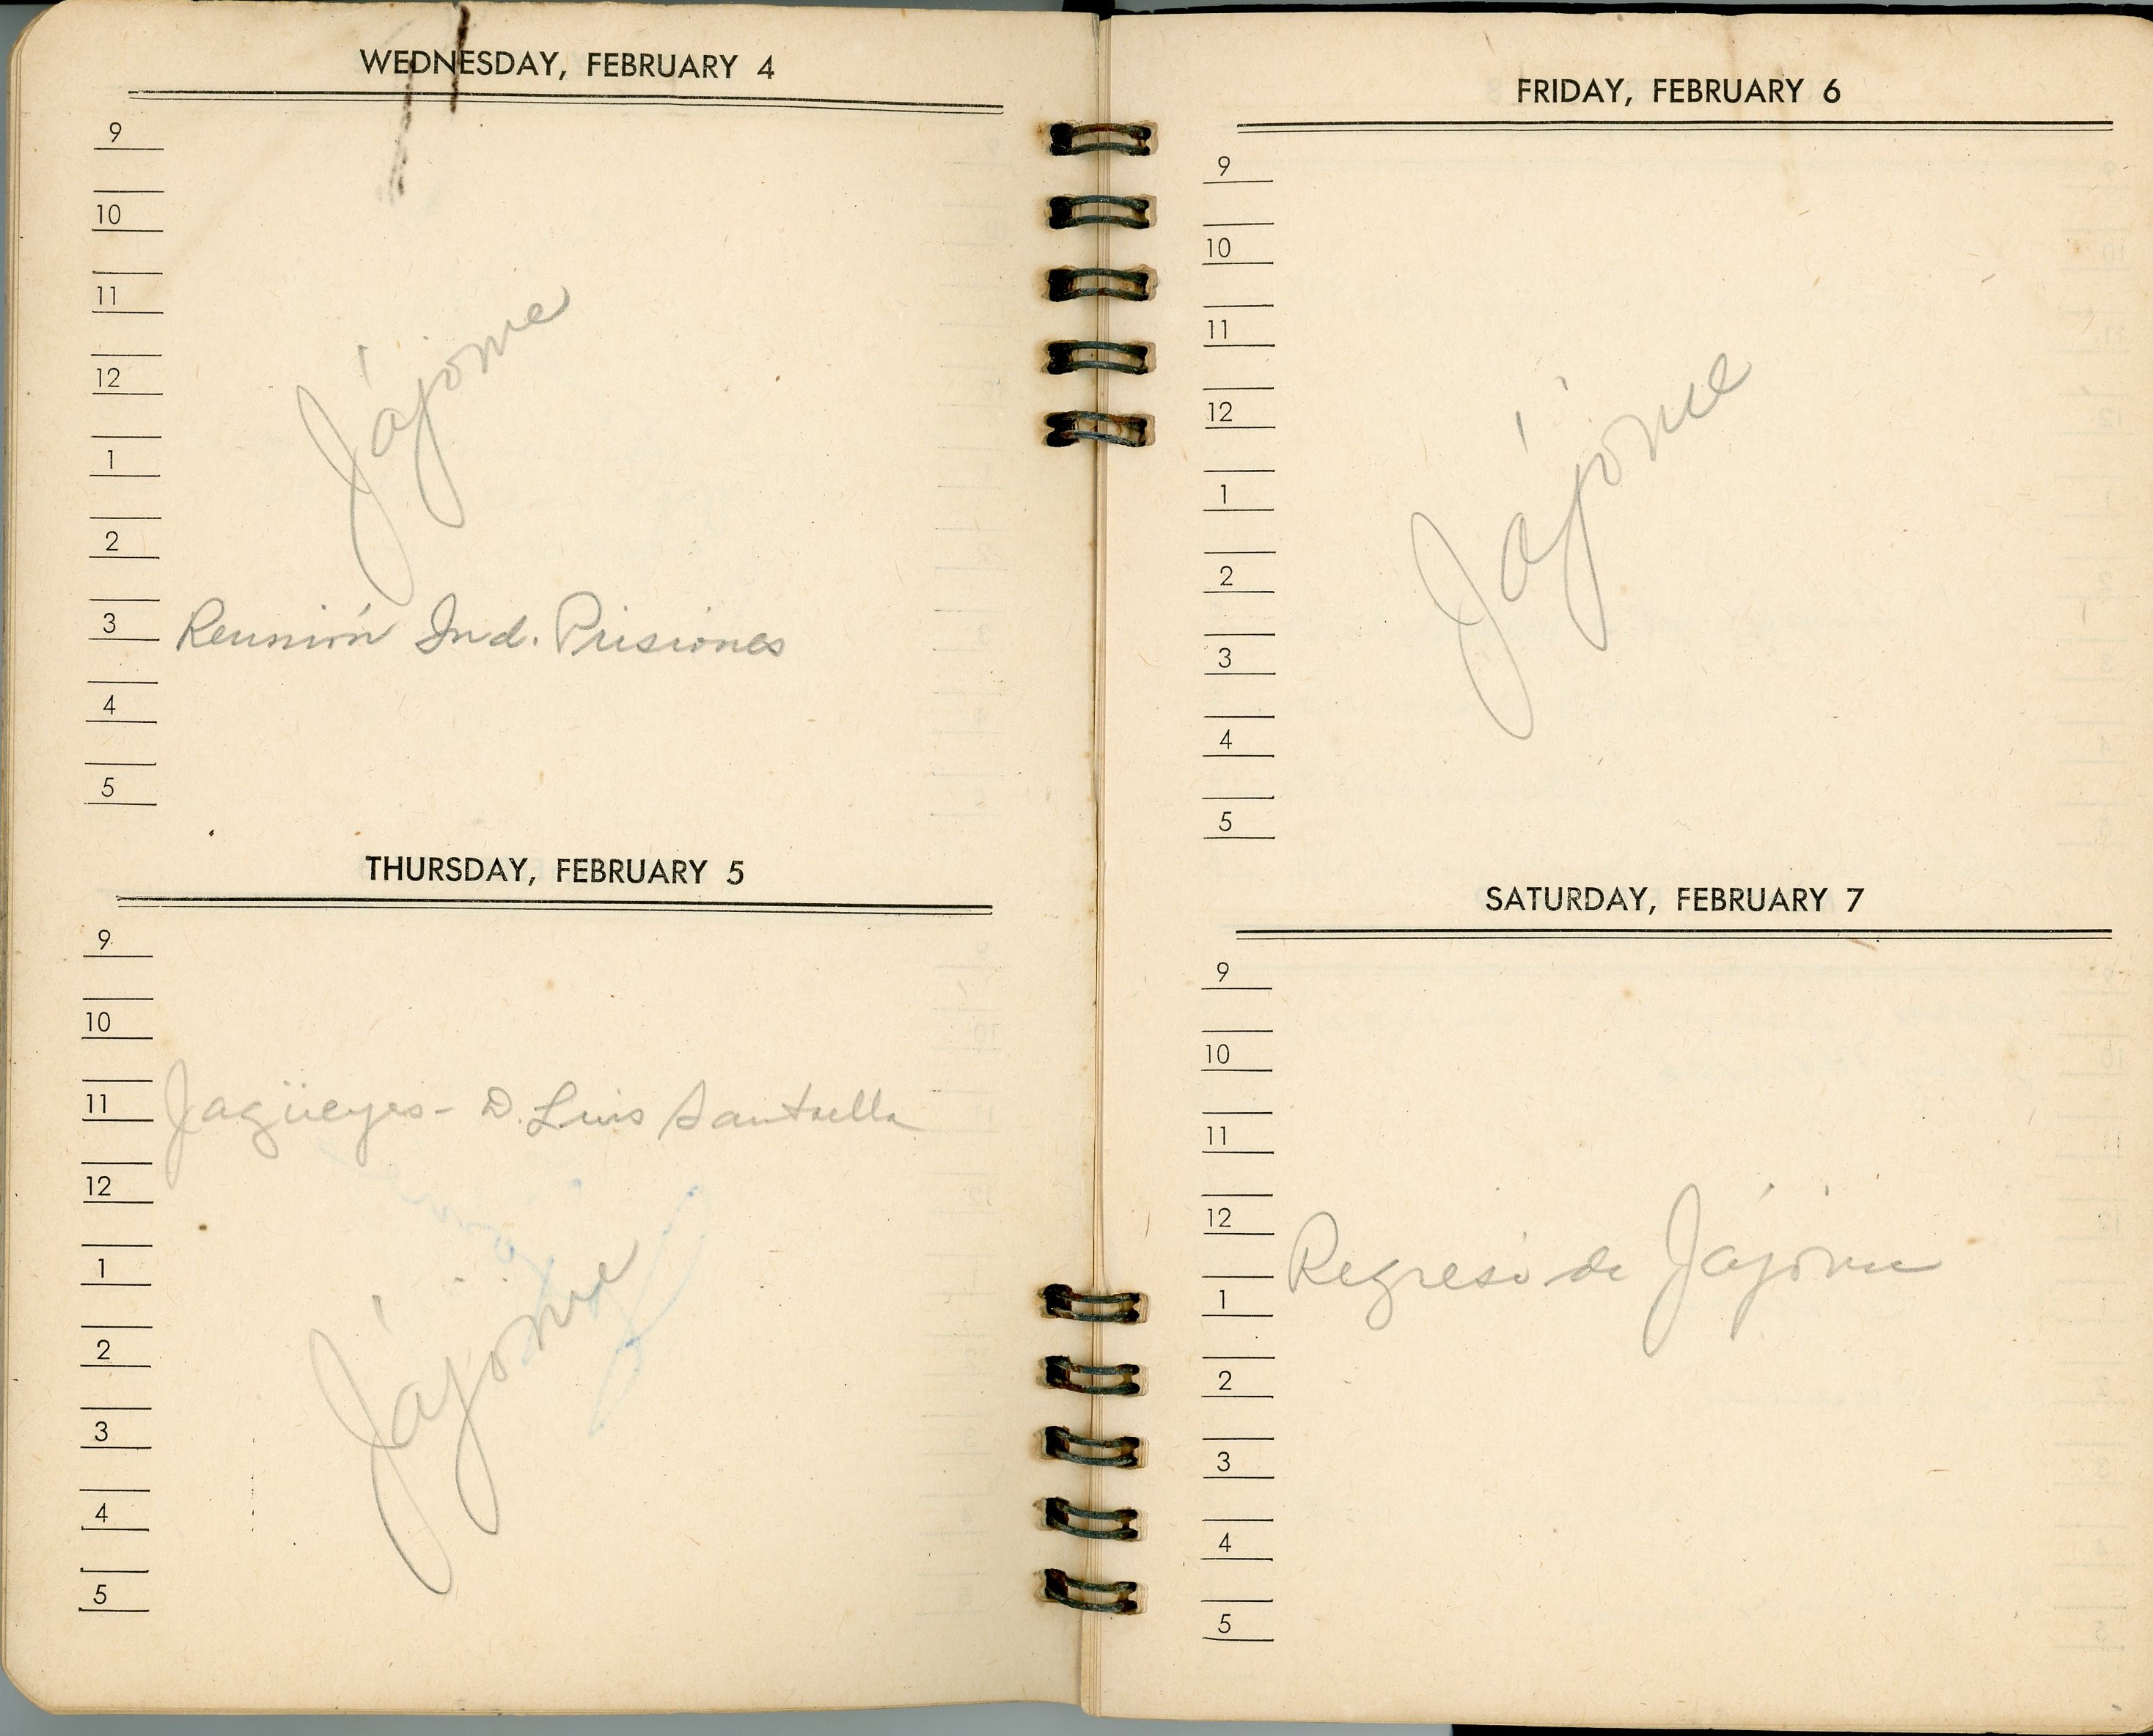 WEDNESDAY, FEBRUARY 4
9
10
11
Jájome
12
1
2
3 Reunión Ind. Prisiones
4
5
THURSDAY, FEBRUARY 5
9
10
11 Jagüeyes - D. Luis Santaella
12
1
Jájome
2
3
4
5
FRIDAY, FEBRUARY 6
9
10
11
12
Jájome
1
2
3
4
5
SATURDAY, FEBRUARY 7
9
10
11
12
Regreso de Jájome
1
2
3
4
5